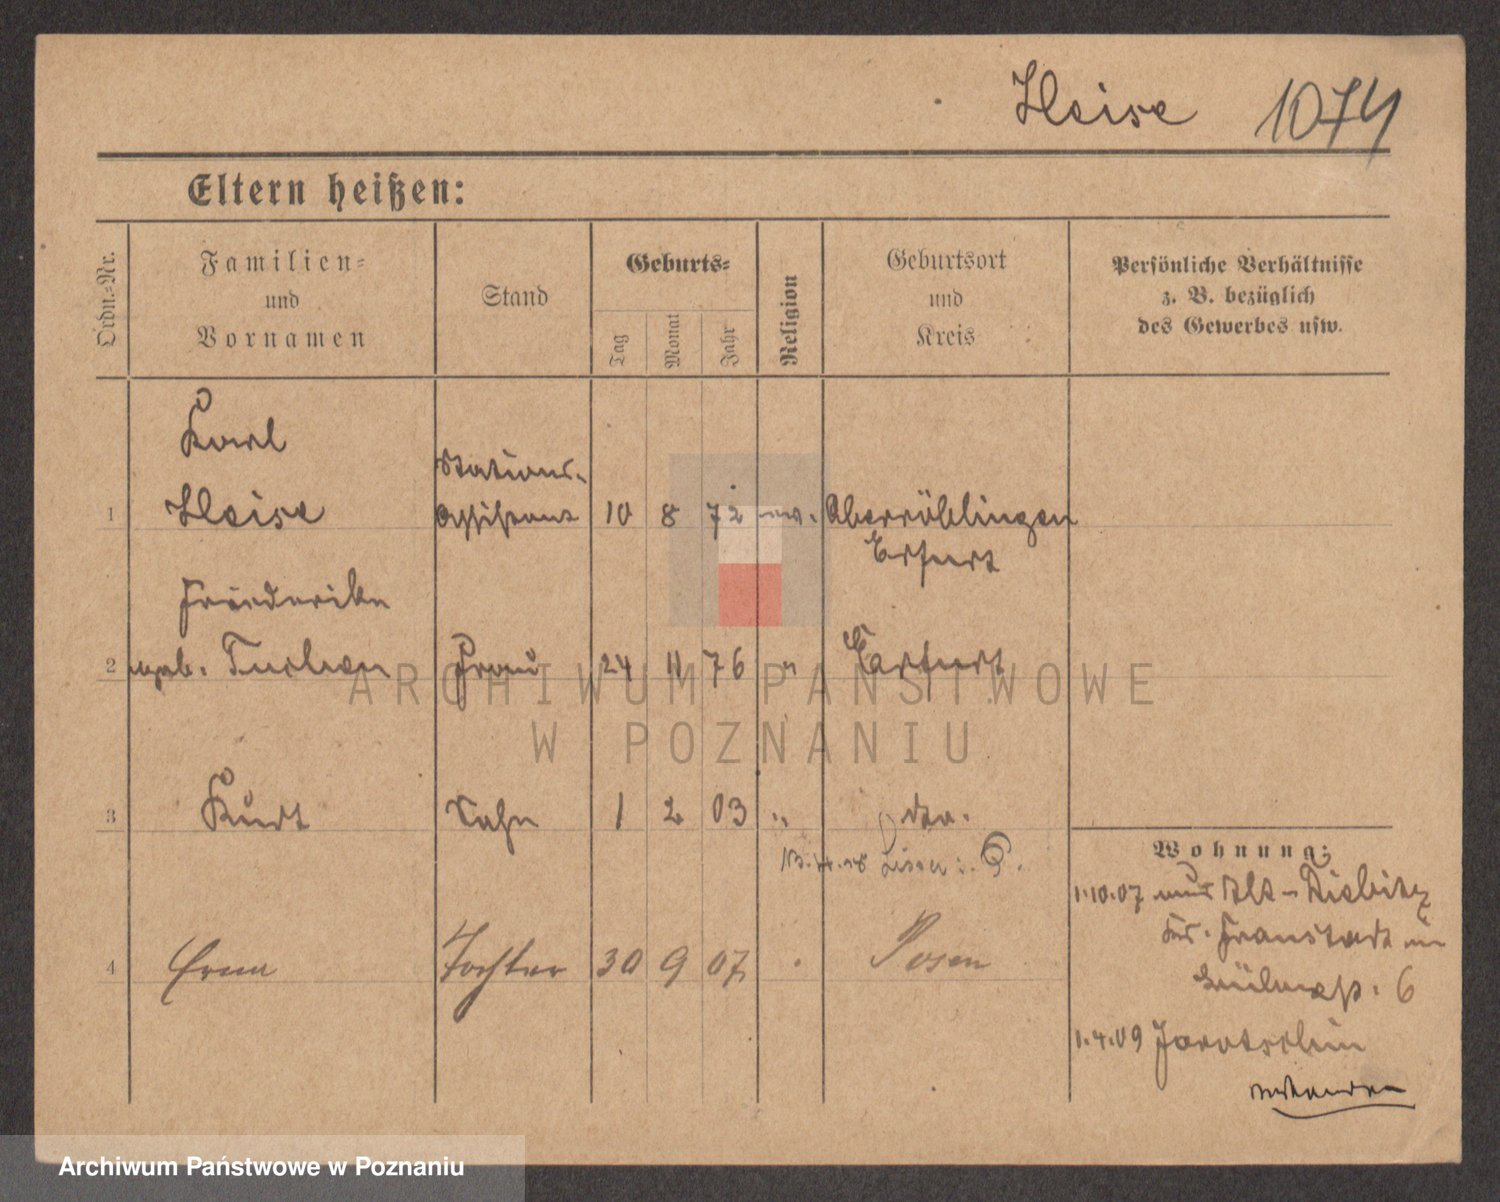 Heise 1074
Eltern heißen:
Ordn.-Nr.
Familien-
und
Vornamen
Stand
Geburts-
Tag
Monat
Jahr
Religion
Geburtsort
und
Kreis
Persönliche Verhältnisse
z. B. bezüglich
des Gewerbes usw.
Karl
Stations-
1 Heise Assistent 10 8 72 ev. Oberröblingen
Erfurt
Friederike
2 geb. Frau 24 11 76 " Erfurt
3 Kurt Sohn 1 2 03 " do.
Lissa i. P.
Wohnung:
1.10.07 aus Alt-
Kr. Fraustadt
6
4 Erna Tochter 30 9 07 Posen
1.4.09 Jarotschin
ARCHIWUM PAŃSTWOWE
W POZNANIU
Archiwum Państwowe w Poznaniu